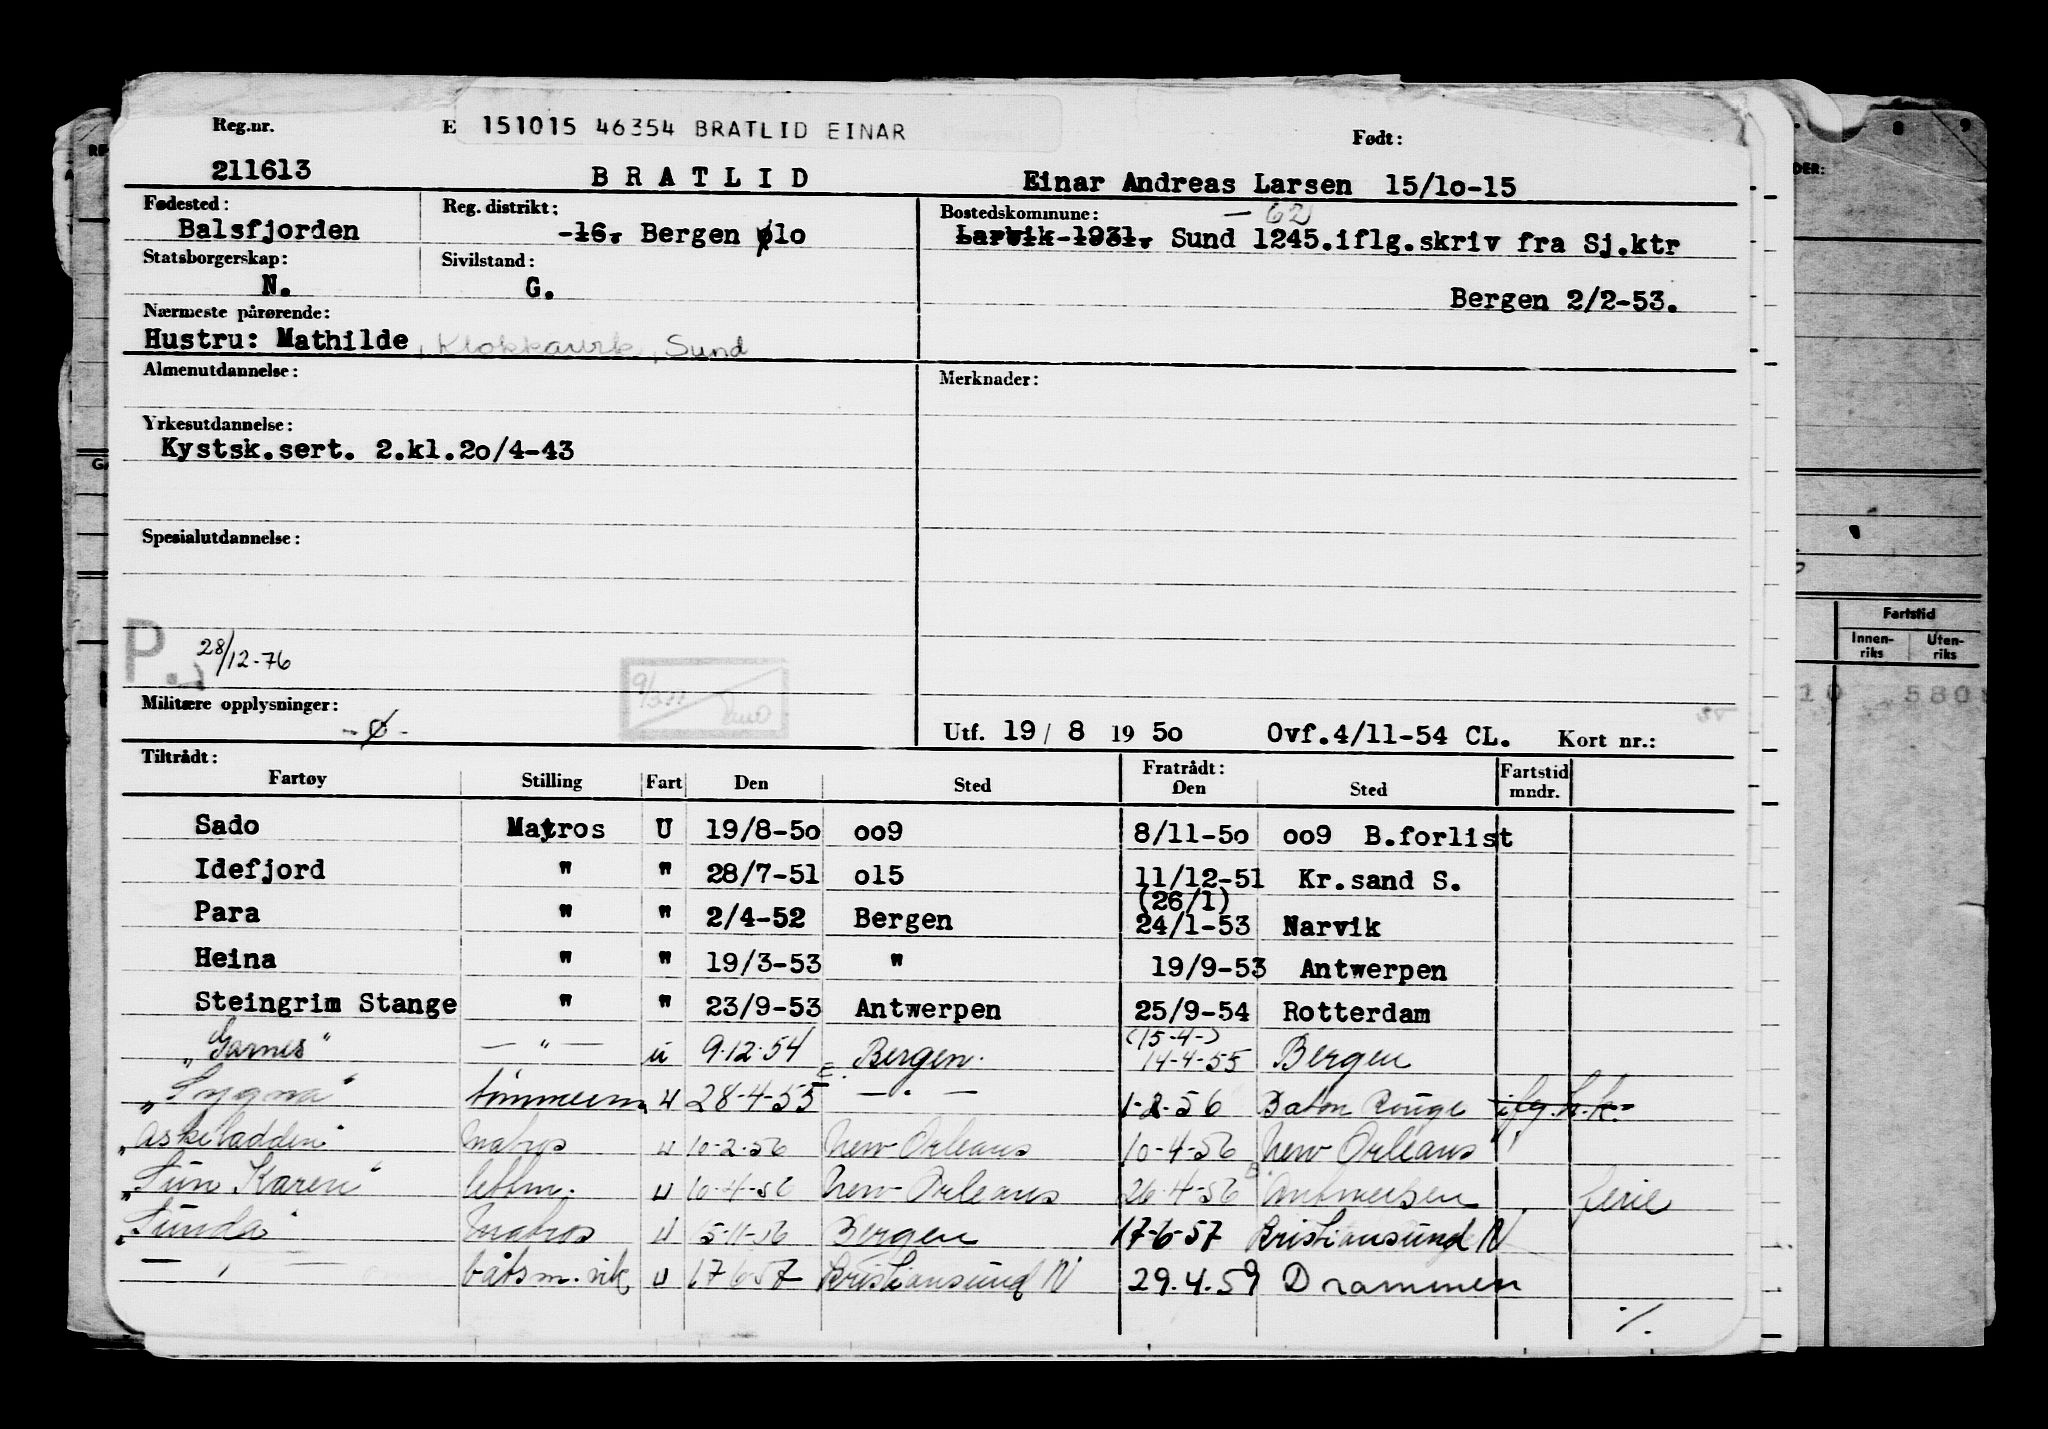 Reg.nr. E 151015 46354 BRATLID EINAR Født:
211613 BRATLID Einar Andreas Larsen 15/10-15
Fødested: Reg. distrikt: Bostedskommune: — 62
Balsfjorden -16. Bergen 010 Larvik-1931. Sund 1245.iflg.skriv fra Sj.ktr
Statsborgerskap: Sivilstand:
N. G. Bergen 2/2-53.
Nærmeste pårørende:
Hustru: Mathilde, Klokkarvik, Sund
Almenutdannelse: Merknader:
Yrkesutdannelse:
Kystsk.sert. 2.kl.20/4-43
Spesialutdannelse:
P. 28/12-76
Militære opplysninger:
-ø- Utf. 19/8 1950 Ovf.4/11-54 CL. Kort nr.:
Tiltrådt: Fratrådt: Fartstid
Fartøy Stilling Fart Den Sted Den Sted mndr.
Sado Matros U 19/8-50 009 8/11-50 009 B.forlist
Idefjord " " 28/7-51 015 11/12-51 Kr.sand S.
(26/1)
Para " " 2/4-52 Bergen 24/1-53 Narvik
Heina " " 19/3-53 " 19/9-53 Antwerpen
Steingrim Stange " " 23/9-53 Antwerpen 25/9-54 Rotterdam
(15-4-)
"Garnes" — " — u 9.12.54 Bergen. 14-4-55 Bergen
"Sygna" tømmerm. u 28-4-55 — " — 1-2-56 Baton Rouge
"Askeladden" Matros u 10-2-56 New Orleans 10-4-56 New Orleans
"Sun Karen" lettm. u 10-4-56 New Orleans 26-4-56 Antwerpen ferie
"Sunda" Matros u 15-11-56 Bergen 17-6-57 Kristiansund N
— " — båtsm. vik u 17-6-57 Kristiansund N 29.4.59 Drammen
./.
8 9
DER:
Fartstid
Innen-riks Uten-riks
10 580